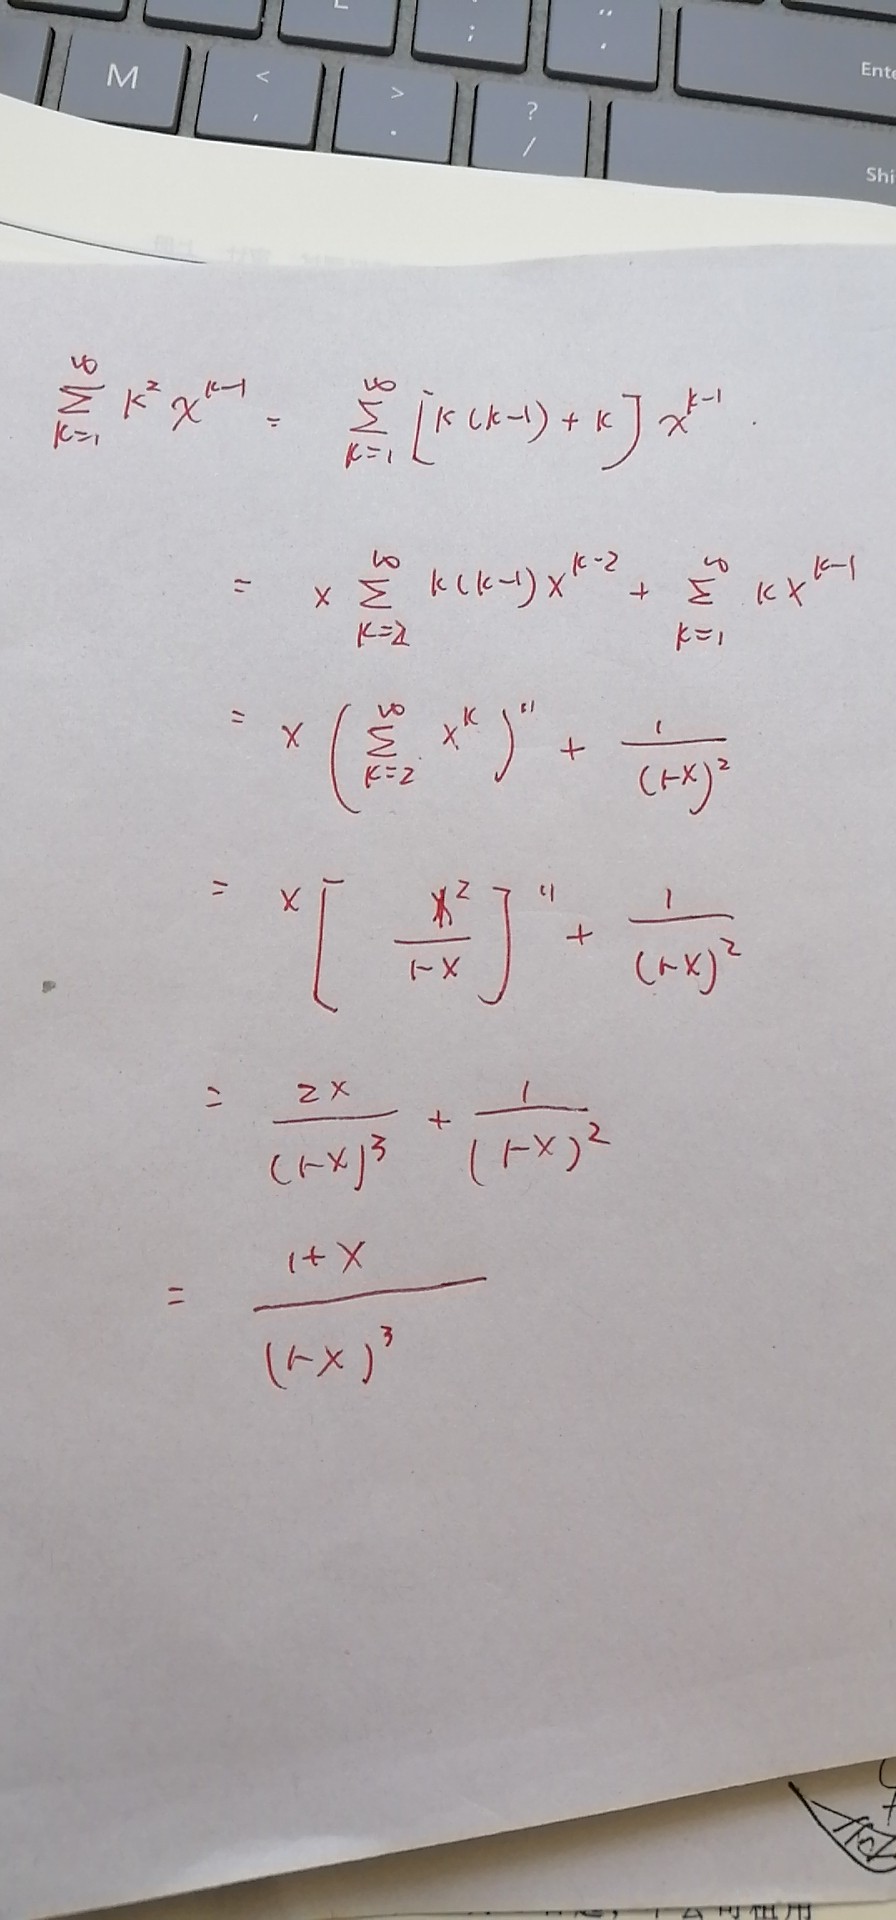 L : ; " '
M < , > . ? / Ente
Shi
∑_{k=1}^{∞} k² x^{k-1} = ∑_{k=1}^{∞} [k(k-1)+k] x^{k-1}.
= x ∑_{k=2}^{∞} k(k-1)x^{k-2} + ∑_{k=1}^{∞} kx^{k-1}
= x (∑_{k=2}^{∞} x^k)'' + 1/(1-x)²
= x [x²/(1-x)]'' + 1/(1-x)²
= 2x/(1-x)³ + 1/(1-x)²
= (1+x)/(1-x)³